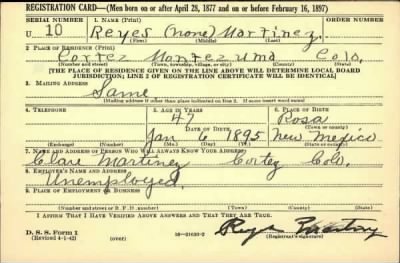 REGISTRATION CARD—(Men born on or after April 28, 1877 and on or before February 16, 1897)
SERIAL NUMBER 1. NAME (Print)
U 10 Reyes (none) Martinez
(First) (Middle) (Last)
2. PLACE OF RESIDENCE (Print)
Cortez Montezuma Colo.
(Number and street) (Town, township, village, or city) (County) (State)
[THE PLACE OF RESIDENCE GIVEN ON THE LINE ABOVE WILL DETERMINE LOCAL BOARD
JURISDICTION; LINE 2 OF REGISTRATION CERTIFICATE WILL BE IDENTICAL]
3. MAILING ADDRESS
Same
[Mailing address if other than place indicated on line 2. If same insert word same]
4. TELEPHONE 5. AGE IN YEARS 6. PLACE OF BIRTH
47 Rosa
DATE OF BIRTH (Town or county)
Jan 6 1895 New Mexico
(Exchange) (Number) (Mo.) (Day) (Yr.) (State or country)
7. NAME AND ADDRESS OF PERSON WHO WILL ALWAYS KNOW YOUR ADDRESS
Clara Martinez Cortez Colo.
8. EMPLOYER'S NAME AND ADDRESS
Unemployed.
9. PLACE OF EMPLOYMENT OR BUSINESS
(Number and street or R. F. D. number) (Town) (County) (State)
I AFFIRM THAT I HAVE VERIFIED ABOVE ANSWERS AND THAT THEY ARE TRUE.
D. S. S. Form 1
(Revised 4-1-42) (over) 16—21630-2 (Registrant's signature)